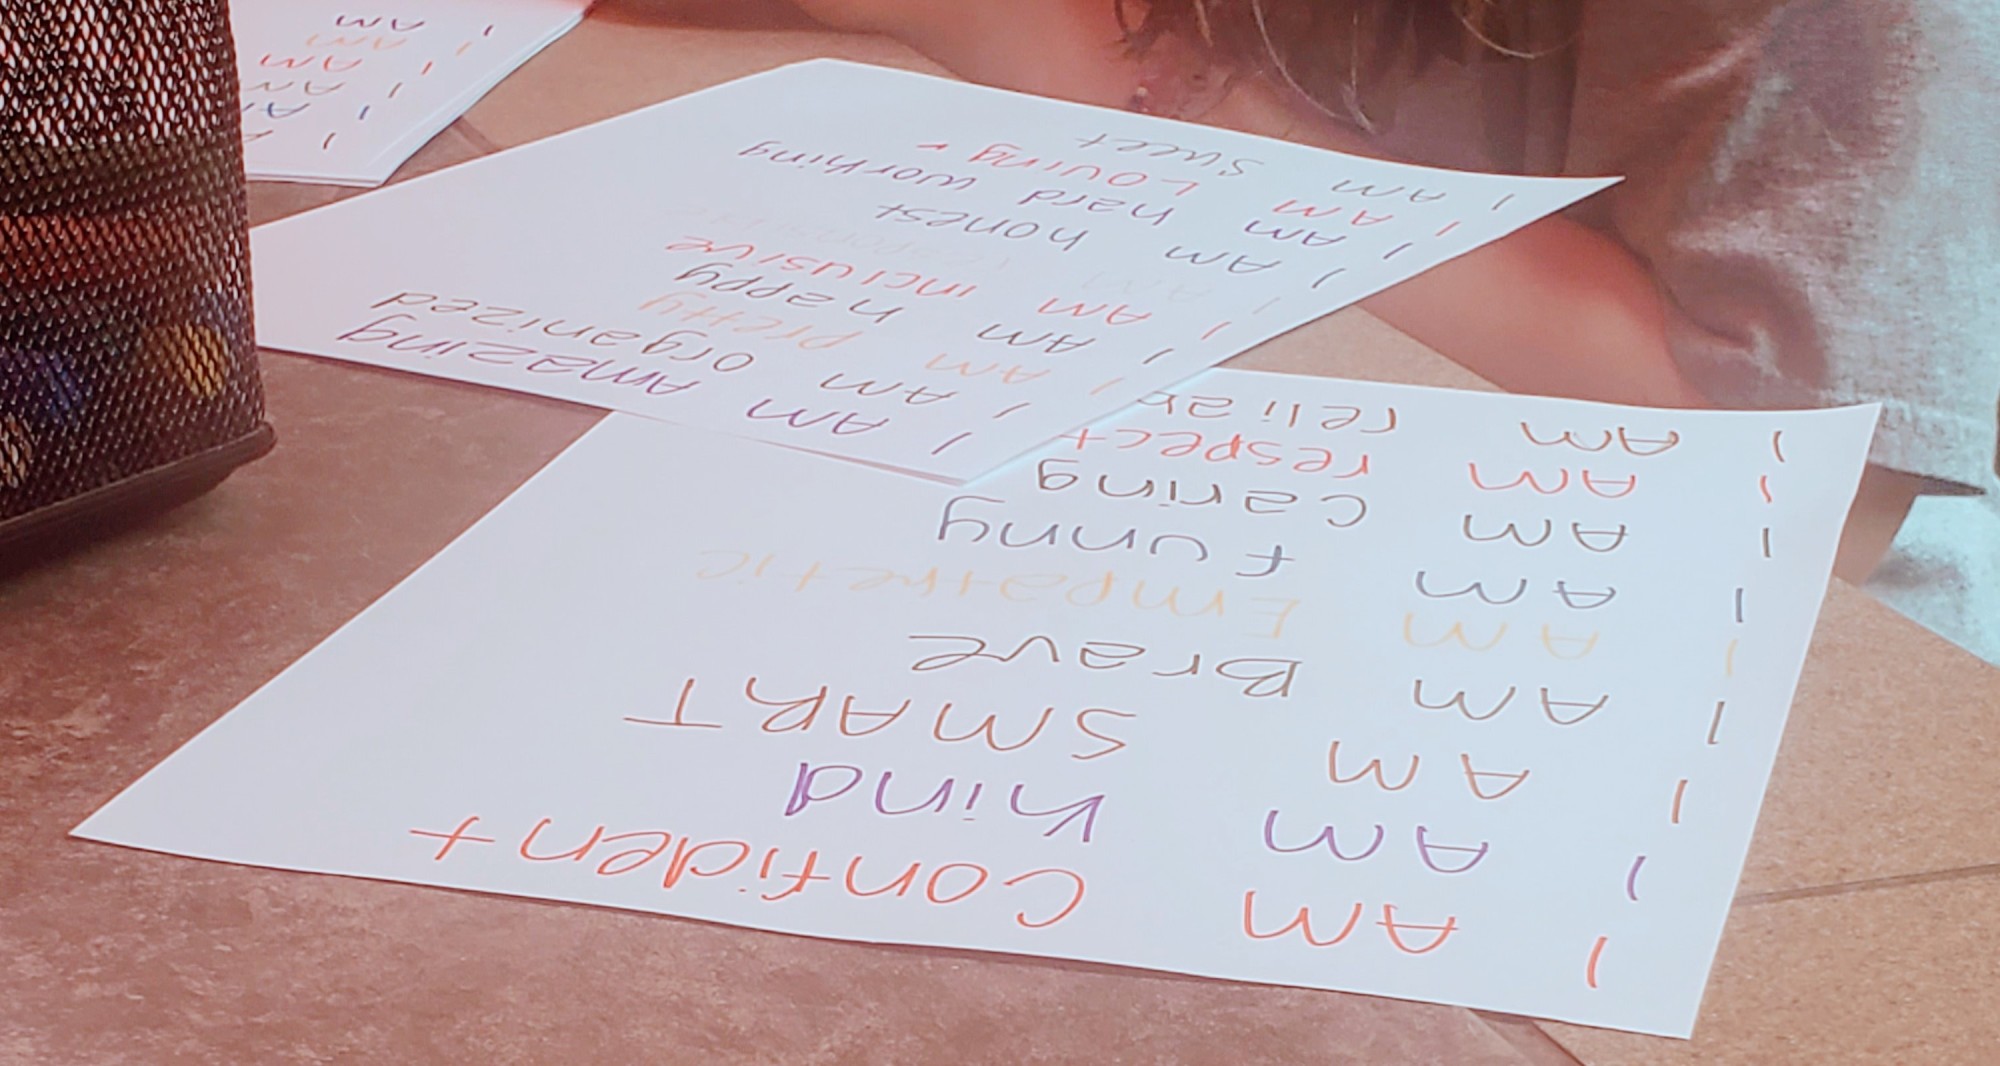 I AM Confident
I AM kind
I AM SMART
I AM Brave
I AM Empathetic
I AM funny
I AM caring
I AM respect
I AM reliab
I AM Amazing
I AM organized
I AM pretty
I AM happy
I AM inclusive
I AM
I AM honest
I AM hard working
I AM Loving
I AM Sweet
I A
I A
I AM
I AM
I AM
I AM